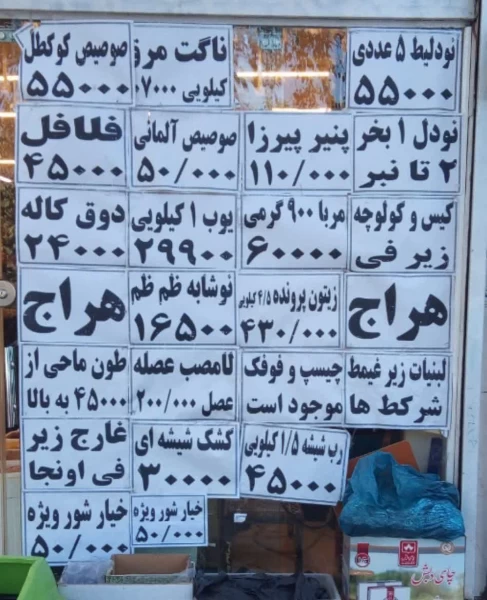 نودلیط ۵ عددی
۵۵۰۰۰
ناگت مرق
کیلویی ۰۷۰۰۰
صوصیص کوکطل
۵۵۰۰۰
نودل ۱ بخر
۲ تا نبر
پنیر پیرزا
۱۱۰/۰۰۰
صوصیص آلمانی
۵۰/۰۰۰
فلافل
۴۵۰۰۰
کیس و کولوچه
زیر فی
مربا ۹۰۰ گرمی
۶۰۰۰۰
یوب ۱ کیلویی
۲۹۹۰۰
دوق کاله
۲۴۰۰۰
هراج
زیتون پرونده ۴/۵ کیلویی
۴۳۰/۰۰۰
نوشابه ظم ظم
۱۶۵۰۰
هراج
لبنیات زیر غیمط
شرکط ها
چیسپ و فوفک
موجود است
لامصب عصله
عصل ۲۰۰/۰۰۰
طون ماحی از
۴۵۰۰۰ به بالا
رب شیشه ۱/۵ کیلویی
۴۵۰۰۰
کشگ شیشه ای
۳۰۰۰۰
غارج زیر
فی اونجا
خیار شور ویژه
۵۰/۰۰۰
خیار شور ویژه
۵۰/۰۰۰
چای دبش